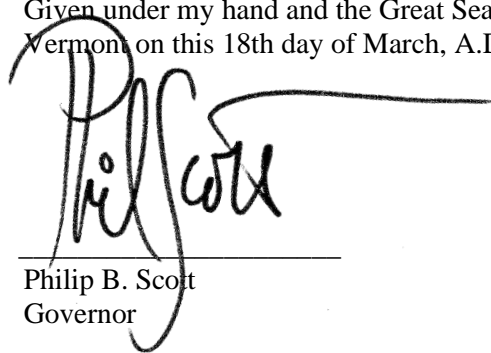 Given under my hand and the Great Sea
Vermont on this 18th day of March, A.D
Phil Scott
Philip B. Scott
Governor